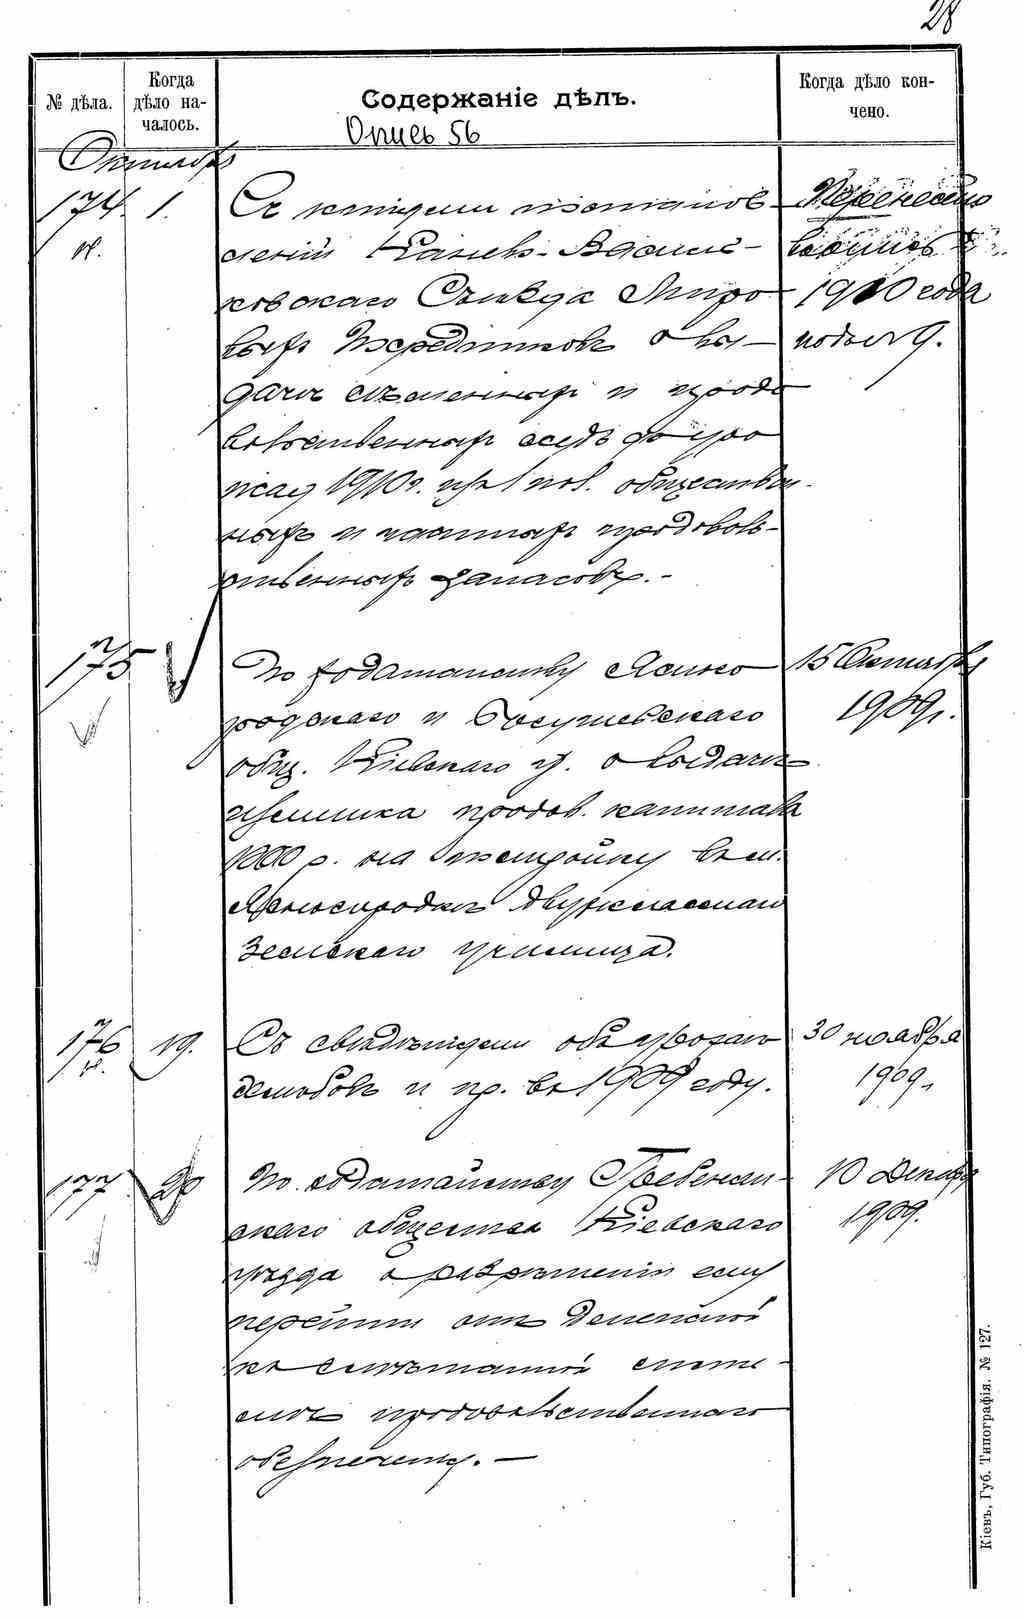 28
№ дѣла.
Когда дѣло на-
чалось.
Содержаніе дѣлъ.
Когда дѣло кон-
чено.
Опись 56
Октябрь
174. 1.
Съ копіями постанов-
леній Канев.-Васильковскаго Съѣзда Миро-
выхъ Посредниковъ о вы-
дачѣ сѣменныхъ и продо
вольственныхъ ссудъ до уро
жая 1910 г. изъ обществен-
ныхъ и частныхъ продоволь-
ственныхъ запасовъ. -
Перенесено
въ опись
1910 года
подъ № 9.
175
По ходатайству Ясно
родскаго и
общ. Кіевскаго у. о выдачѣ
излишка продов. капитала
1000 р. на постройку въ м.
Ясногородкѣ двухкласснаго
Земскаго училища.
15 Октября
1909 г.
176 19.
Съ свѣдѣніями объ урожаѣ
хлѣбовъ и пр. въ 1909 году.
30 ноября
1909 г.
177 20
По ходатайству Гребенскаго общества Кіевскаго
уѣзда о разрѣшеніи ему
перейти отъ денежной
къ смѣшанной систе-
мѣ продовольственнаго
обезпеченія. —
10 Декабря
1909.
Кіевъ, Губ. Типографія. № 127.